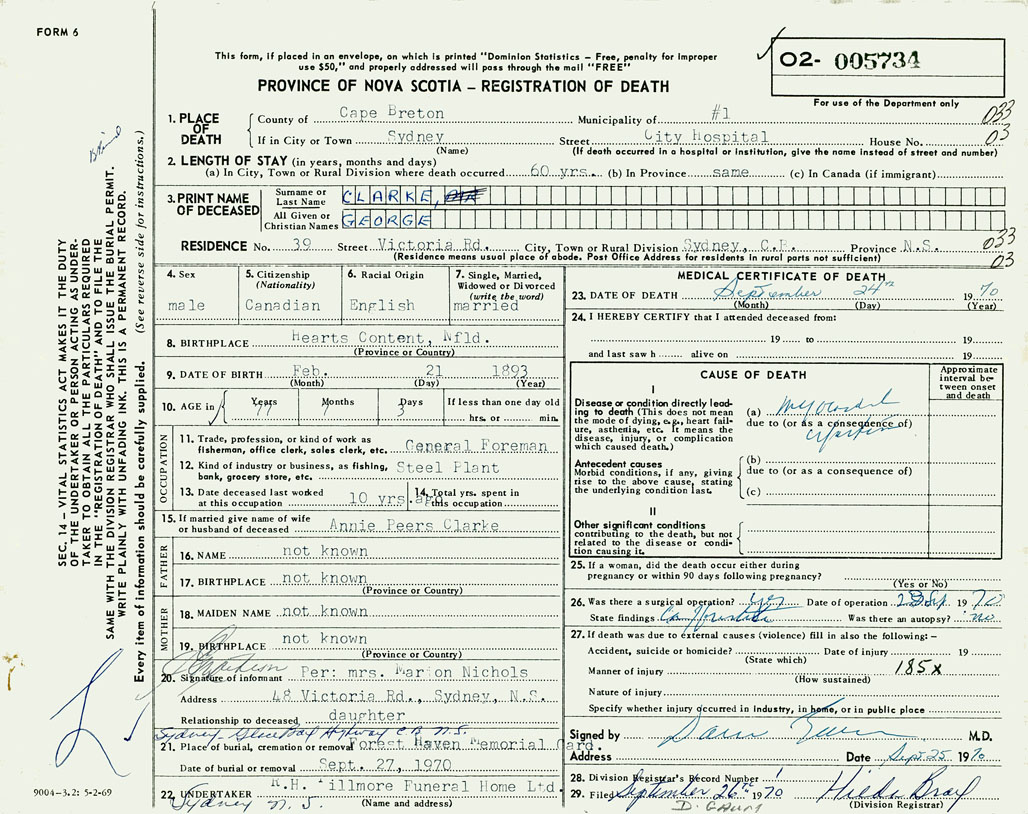 FORM 6
This form, if placed in an envelope, on which is printed "Dominion Statistics – Free, penalty for improper
use $50," and properly addressed will pass through the mail "FREE"
O2- 005734
For use of the Department only
PROVINCE OF NOVA SCOTIA – REGISTRATION OF DEATH
1. PLACE OF DEATH County of Cape Breton Municipality of #1 033
If in City or Town Sydney Street City Hospital House No. 03
(Name) (If death occurred in a hospital or institution, give the name instead of street and number)
2. LENGTH OF STAY (in years, months and days)
(a) In City, Town or Rural Division where death occurred 60 yrs. (b) In Province same (c) In Canada (if immigrant)
3. PRINT NAME OF DECEASED Surname or Last Name CLARKE,
All Given or Christian Names GEORGE
RESIDENCE No. 39 Street Victoria Rd. City, Town or Rural Division Sydney, C.B. Province N.S. 033
(Residence means usual place of abode. Post Office Address for residents in rural parts not sufficient) 03
4. Sex male
5. Citizenship (Nationality) Canadian
6. Racial Origin English
7. Single, Married, Widowed or Divorced (write the word) married
8. BIRTHPLACE Hearts Content, Nfld.
(Province or Country)
9. DATE OF BIRTH Feb. 21 1893
(Month) (Day) (Year)
10. AGE in Years 77 Months 7 Days 3 If less than one day old
hrs. or min.
OCCUPATION
11. Trade, profession, or kind of work as
fisherman, office clerk, sales clerk, etc. General Foreman
12. Kind of industry or business, as fishing,
bank, grocery store, etc. Steel Plant
13. Date deceased last worked
at this occupation 10 yrs. ago
14. Total yrs. spent in
this occupation
15. If married give name of wife
or husband of deceased Annie Peers Clarke
FATHER
16. NAME not known
17. BIRTHPLACE not known
(Province or Country)
MOTHER
18. MAIDEN NAME not known
19. BIRTHPLACE not known
(Province or Country)
20. Signature of informant Per: mrs. Marion Nichols
Address 48 Victoria Rd., Sydney, N.S.
Relationship to deceased daughter
Sydney - Glace Bay Highway C.B. N.S.
21. Place of burial, cremation or removal Forest Haven Memorial Gard.
Date of burial or removal Sept. 27, 1970
22. UNDERTAKER R.H. Fillmore Funeral Home Ltd.
Sydney N.S. (Name and address)
MEDICAL CERTIFICATE OF DEATH
23. DATE OF DEATH September 24th 1970
(Month) (Day) (Year)
24. I HEREBY CERTIFY that I attended deceased from:
19 to 19
and last saw h alive on 19
CAUSE OF DEATH
Approximate interval between onset and death
I
Disease or condition directly leading to death (This does not mean the mode of dying, e.g., heart failure, asthenia, etc. It means the disease, injury, or complication which caused death.)
(a) Myocardial
due to (or as a consequence of)
Antecedent causes
Morbid conditions, if any, giving rise to the above cause, stating the underlying condition last.
(b)
due to (or as a consequence of)
(c)
II
Other significant conditions
contributing to the death, but not related to the disease or condition causing it.
25. If a woman, did the death occur either during
pregnancy or within 90 days following pregnancy?
(Yes or No)
26. Was there a surgical operation? yes Date of operation Sept 1970
State findings Ca Prostate Was there an autopsy? no
27. If death was due to external causes (violence) fill in also the following:–
Accident, suicide or homicide? Date of injury 19
(State which)
Manner of injury 185X
(How sustained)
Nature of injury
Specify whether injury occurred in industry, in home, or in public place
Signed by M.D.
Address Date Sept. 25 1970
28. Division Registrar's Record Number
29. Filed September 26th 1970
(Division Registrar)
SEC. 14 – VITAL STATISTICS ACT MAKES IT THE DUTY
OF THE UNDERTAKER OR PERSON ACTING AS UNDER-
TAKER TO OBTAIN ALL THE PARTICULARS REQUIRED
IN THE "REGISTRATION OF DEATH" AND TO FILE THE
SAME WITH THE DIVISION REGISTRAR WHO SHALL ISSUE THE BURIAL PERMIT.
WRITE PLAINLY WITH UNFADING INK. THIS IS A PERMANENT RECORD.
Every item of information should be carefully supplied. (See reverse side for instructions.)
9004-3.2: 5-2-69